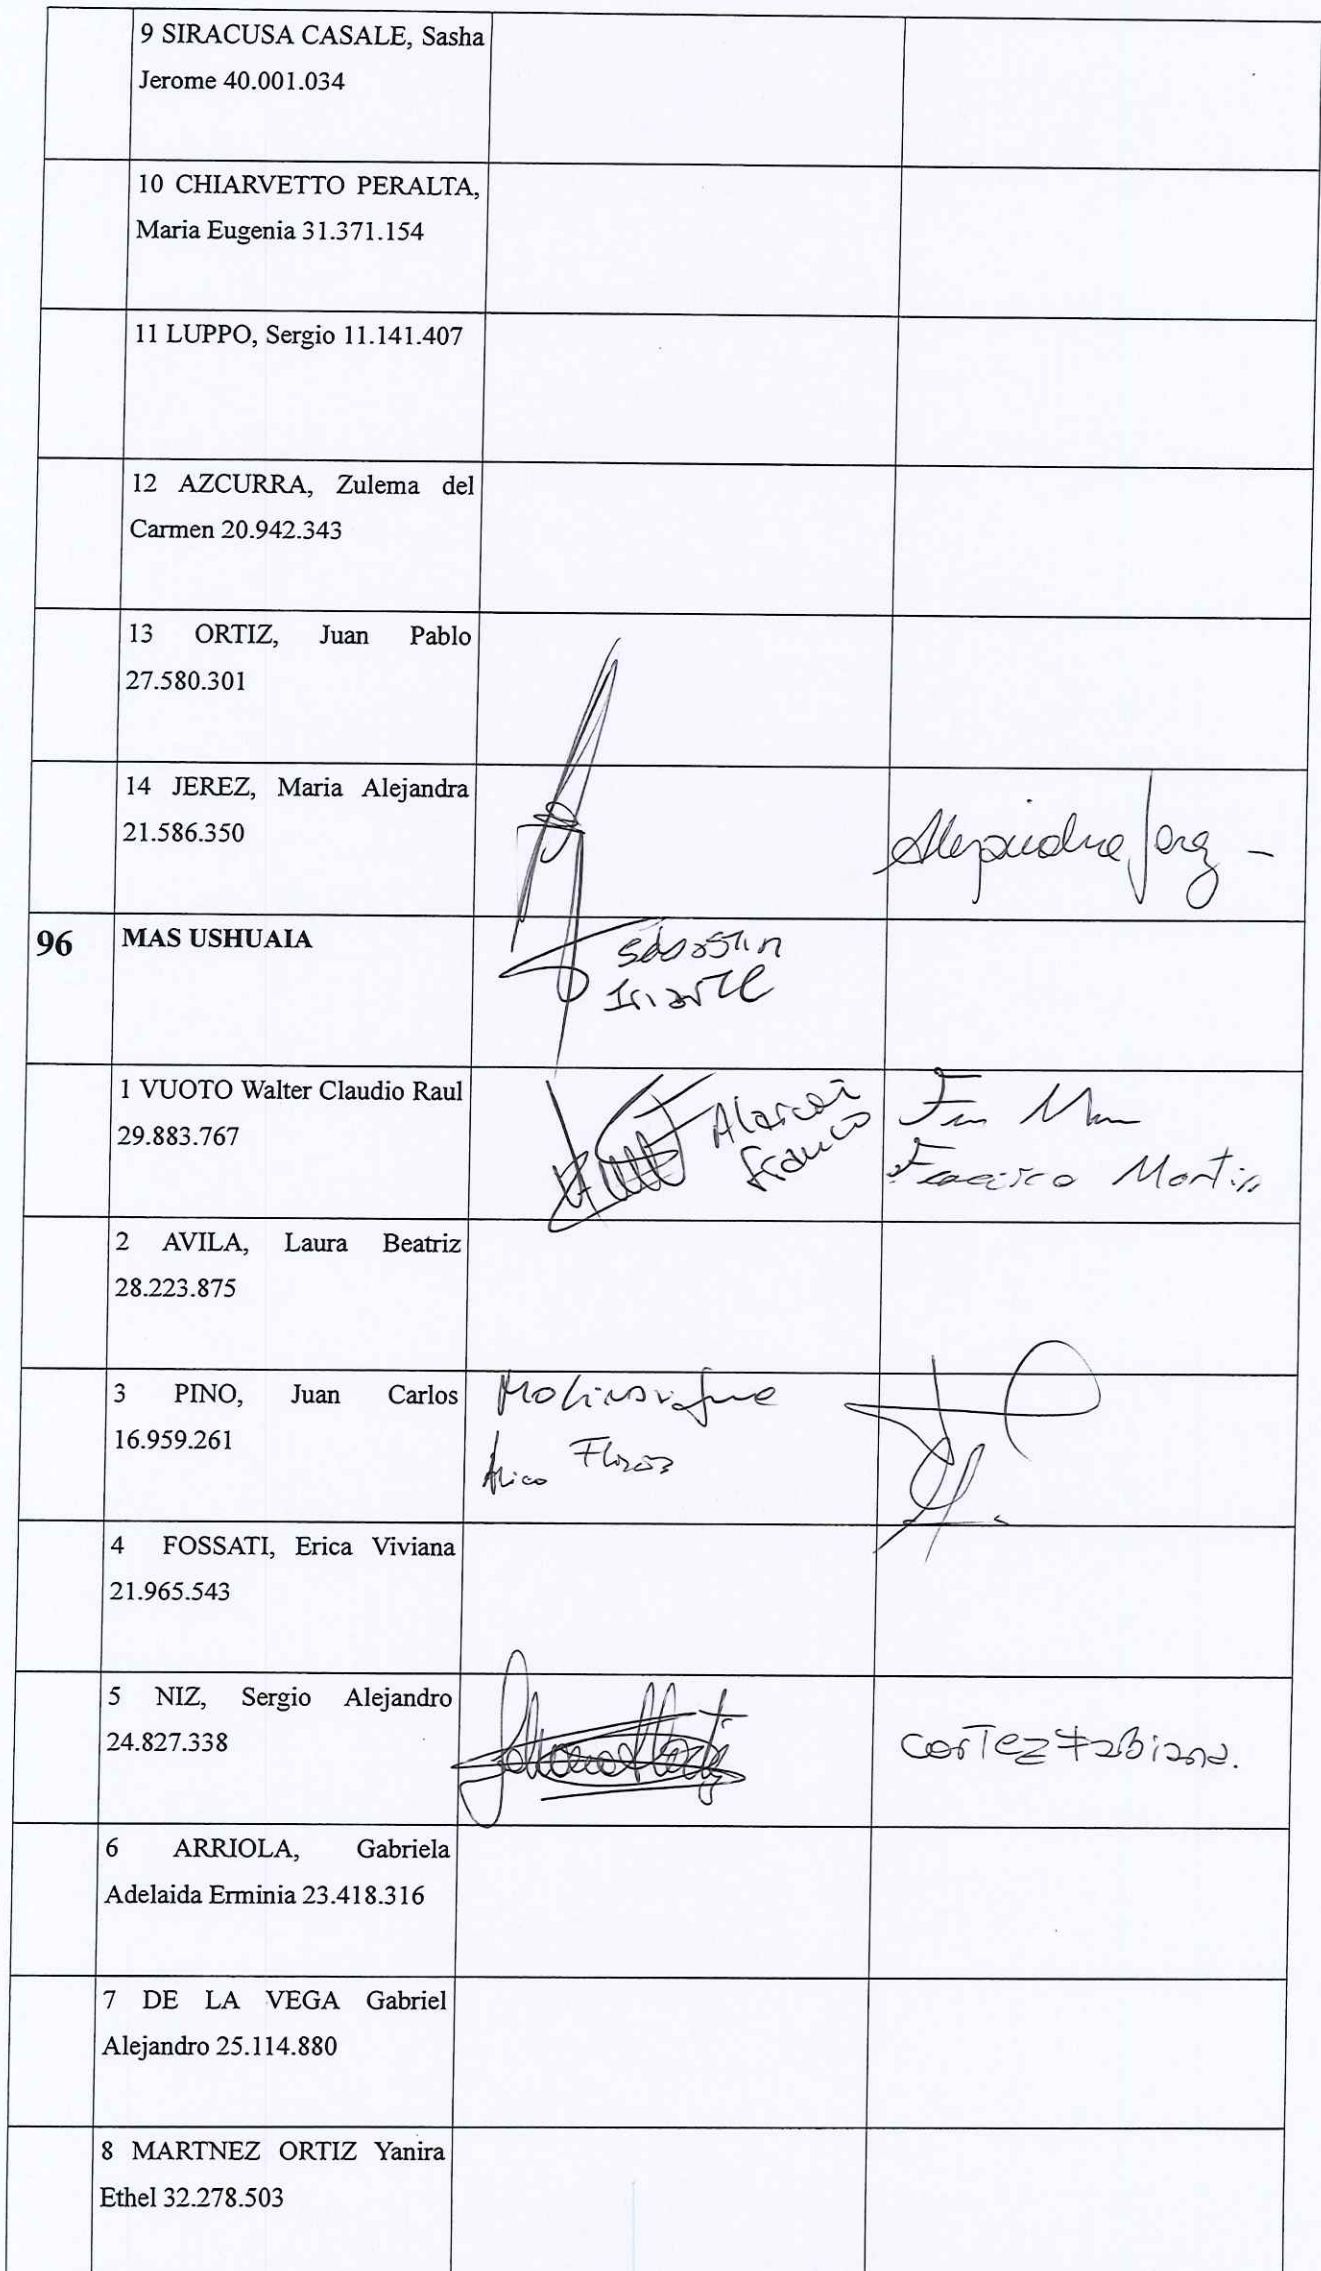 9 SIRACUSA CASALE, Sasha
Jerome 40.001.034
10 CHIARVETTO PERALTA,
Maria Eugenia 31.371.154
11 LUPPO, Sergio 11.141.407
12 AZCURRA, Zulema del
Carmen 20.942.343
13 ORTIZ, Juan Pablo
27.580.301
14 JEREZ, Maria Alejandra
21.586.350
Alejandra Jerez -
96 MAS USHUAIA
Sebastin
Iriarte
1 VUOTO Walter Claudio Raul
29.883.767
Alarcon
Franco
Francisco Martin
2 AVILA, Laura Beatriz
28.223.875
3 PINO, Juan Carlos
16.959.261
4 FOSSATI, Erica Viviana
21.965.543
5 NIZ, Sergio Alejandro
24.827.338
Cortez Fabiana.
6 ARRIOLA, Gabriela
Adelaida Erminia 23.418.316
7 DE LA VEGA Gabriel
Alejandro 25.114.880
8 MARTNEZ ORTIZ Yanira
Ethel 32.278.503